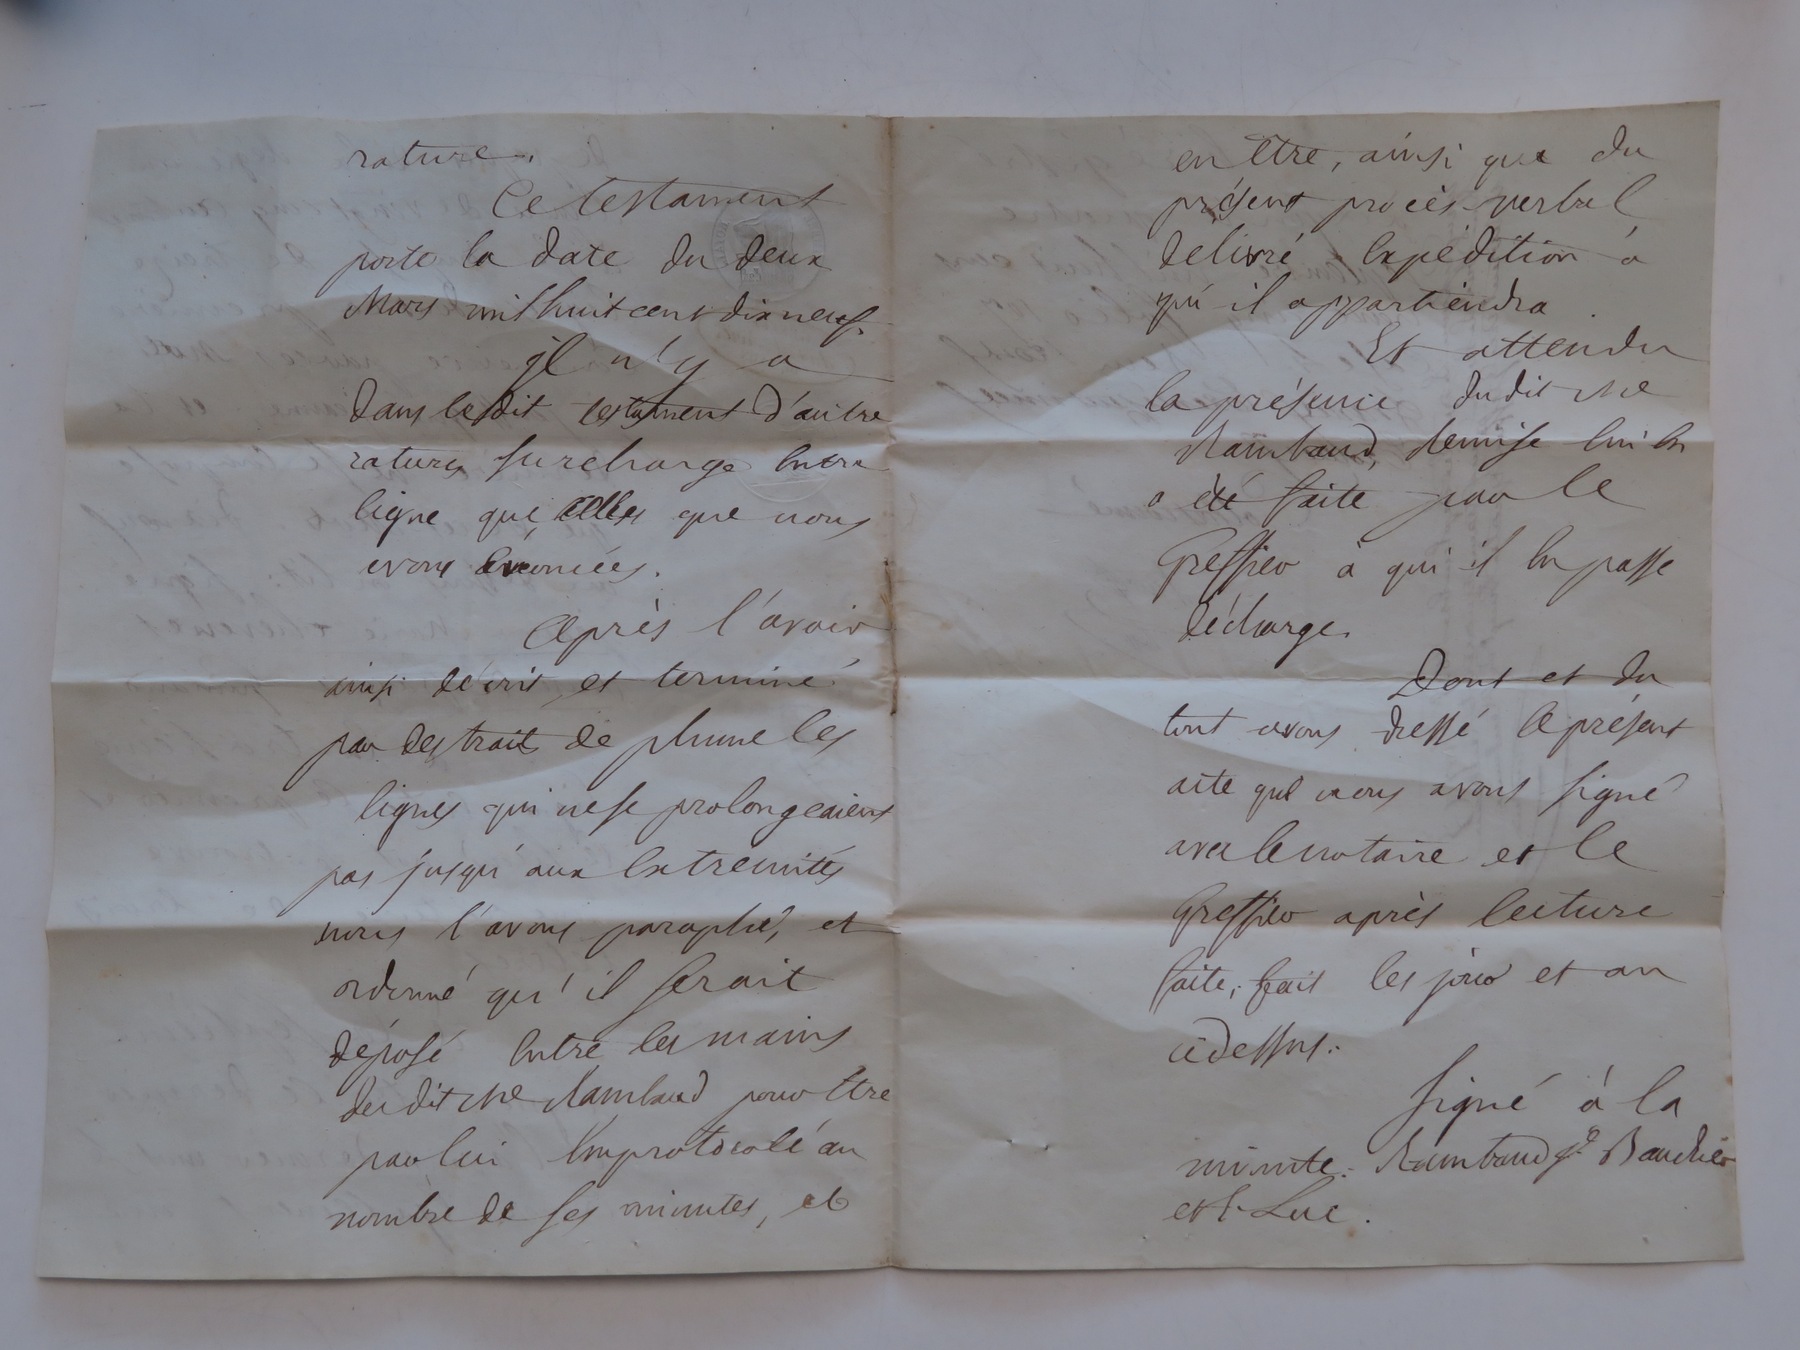 rature.
Ce testament
porte la date du deux
Mars mil huit cent dix neuf.
Il n'y a
dans le dit testament d'autre
rature surcharge entre
ligne que celles que nous
avons énoncées.
Après l'avoir
ainsi décrit et terminé
par des traits de plume les
lignes qui ne se prolongeaient
pas jusqu'aux extremités
nous l'avons paraphé, et
ordonné qu'il serait
déposé entre les mains
du dit Me Rambaud pour être
par lui improtocolé au
nombre de ses minutes, et
en être, ainsi que du
présent procès-verbal
delivré expédition à
qui il appartiendra.
Et attendu
la présence dudit Me
Rambaud, remise lui en
a été faite par le
Greffier à qui il en passe
décharge.
Dont et du
tout avons dressé le présent
acte que nous avons signé
avec le notaire et le
Greffier après lecture
faite, fait les jour et an
cidessus.
Signé à la
minute. Rambaud Baudrier
et Luc.